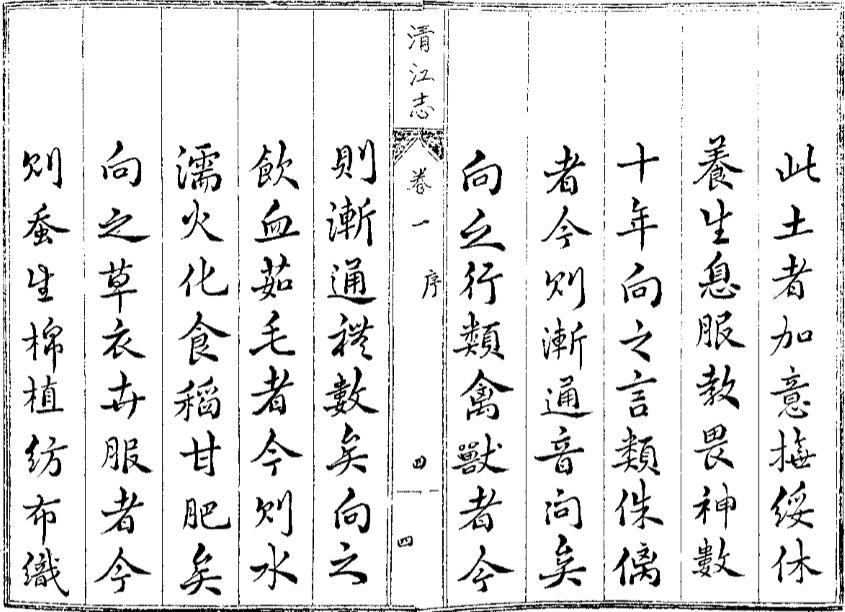 此土者加意撫綏休
養生息服教畏神數
十年向之言類侏𠌯
者今则漸通音问矣
向之行類禽獸者今
清江志
卷一
序
四
四
則漸通禮數矣向之
飲血茹毛者今则水
濡火化食稻甘肥矣
向之草衣卉服者今
则蚕生棉植纺布織